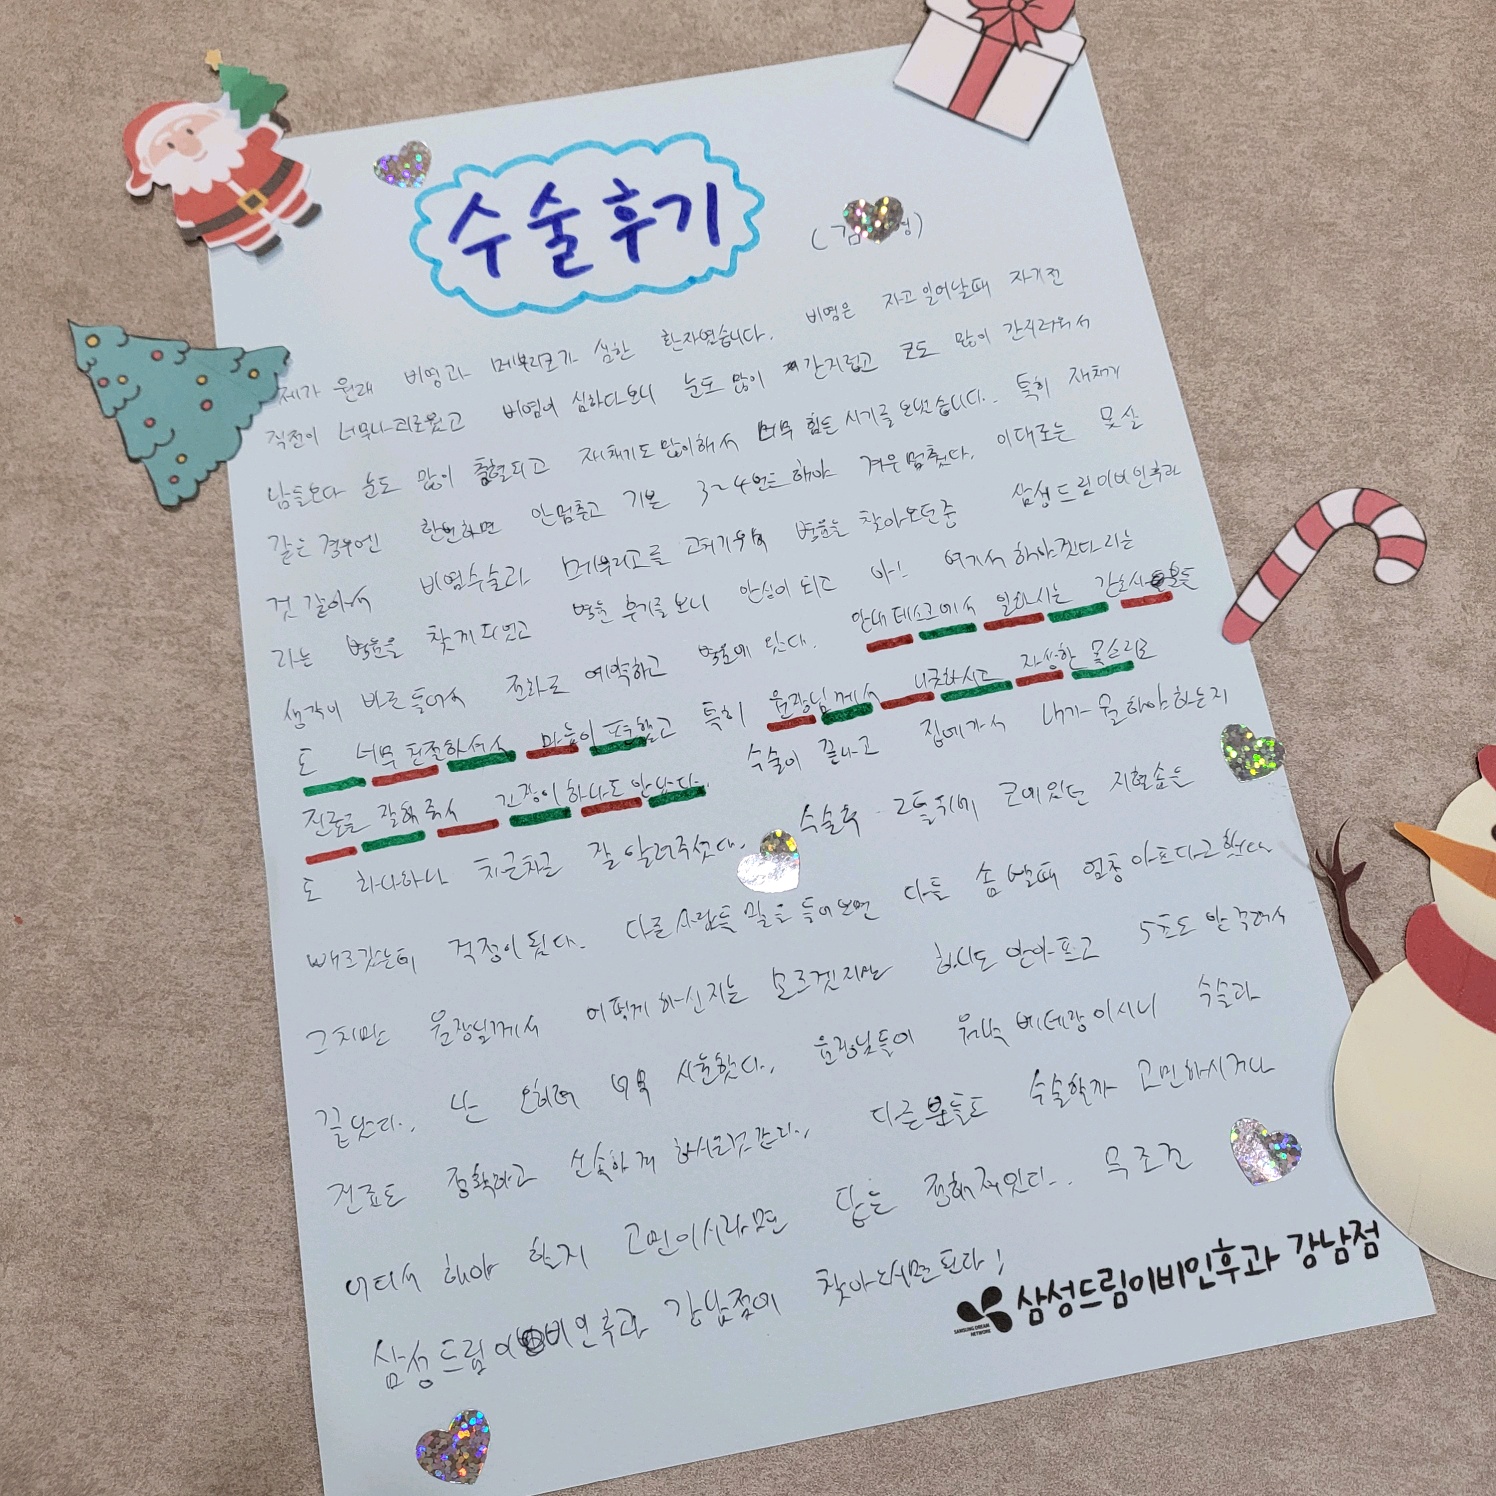 수술후기
(김 영)
제가 원래 비염과 메부리코가 심한 환자였습니다. 비염은 자고 일어날때 자기전
직전이 너무나 괴로웠고 비염이 심하다보니 눈도 많이 간지럽고 코도 많이 간지러워서
남들보다 눈도 많이 충혈되고 재채기도 많이해서 너무 힘든 시기를 보냈습니다.. 특히 재채기
같은 경우엔 한번하면 안멈추고 기본 3~4번은 해야 겨우 멈췄다. 이대로는 못살
것 같아서 비염수술과 메부리코를 고치기위해 병원을 찾아오던중 삼성드림이비인후과
라는 병원을 찾게되었고 병원 후기를 보니 안심이 되고 아! 여기서 해야겠다라는
생각이 바로 들어서 전화로 예약하고 병원에 왔다. 안내데스크에서 일하시는 간호사분들
도 너무 친절하셔서 마음이 편했고 특히 원장님께서 나긋하시고 자상한 목소리로
진료를 잘해줘서 긴장이 하나도 안났다. 수술이 끝나고 집에가서 내가 뭘 해야하는지
도 하나하나 차근차근 잘 알려주셨다. 수술후 2틀뒤에 코에있던 지혈솜을
빼르갔는데 걱정이 됬다. 다른사람들 말을 들어보면 다들 솜 뺄때 엄청 아프다고 했다
그치만 원장님께서 어떻게 하신지는 모르겟지만 하나도 안아프고 5초도 안걸려서
끝났다.. 난 오히려 너무 시원했다. 원장님들이 워낙 베테랑이시니 수술과
진료도 정확하고 신속하게 하시는것같다.. 다른분들도 수술할까 고민하시거나
어디서 해야 할지 고민이시라면 답은 정해져있다.. 무조건
삼성드림이비인후과 강남점에 찾아오시면된다!
삼성드림이비인후과 강남점
SAMSUNG DREAM
NETWORK